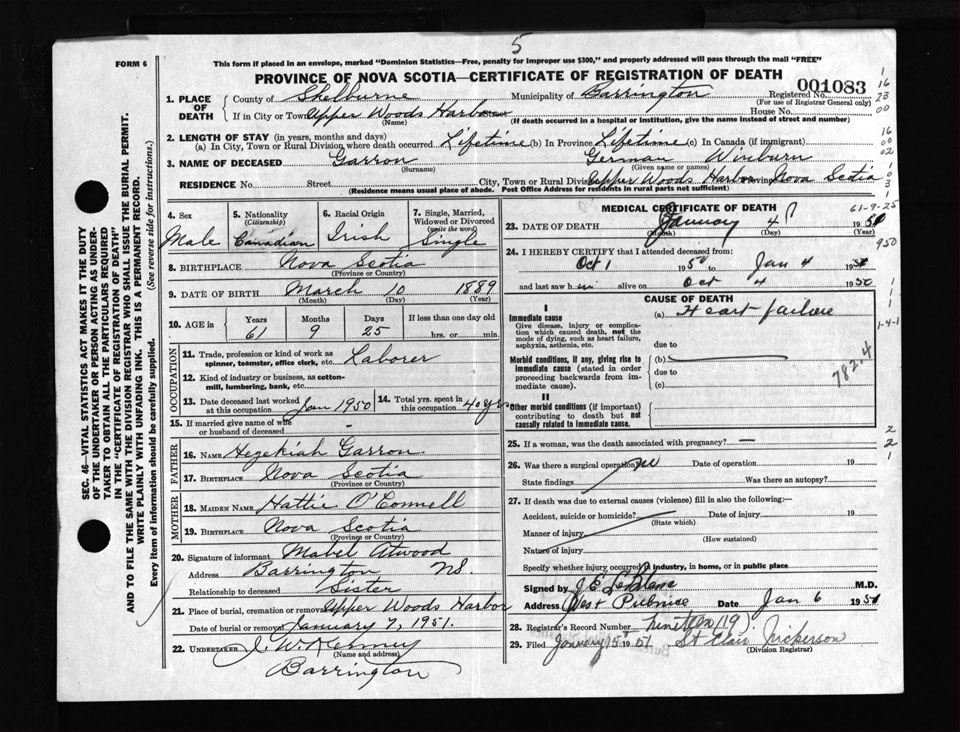 5
FORM 6
This form if placed in an envelope, marked "Dominion Statistics—Free, penalty for improper use $300," and properly addressed will pass through the mail "FREE"
PROVINCE OF NOVA SCOTIA—CERTIFICATE OF REGISTRATION OF DEATH
001083
1. PLACE OF DEATH
County of Shelburne Municipality of Barrington Registered No.
(For use of Registrar General only)
If in City or Town Upper Woods Harbour House No.
(Name) (If death occurred in a hospital or institution, give the name instead of street and number)
2. LENGTH OF STAY (in years, months and days)
(a) In City, Town or Rural Division where death occurred Lifetime (b) In Province Lifetime (c) In Canada (if immigrant)
3. NAME OF DECEASED Garron German Winburn
(Surname) (Given name or names)
RESIDENCE No. Street City, Town or Rural Division Upper Woods Harbor Province Nova Scotia
(Residence means usual place of abode. Post Office Address for residents in rural parts not sufficient)
4. Sex Male
5. Nationality (Citizenship) Canadian
6. Racial Origin Irish
7. Single, Married, Widowed or Divorced (write the word) Single
8. BIRTHPLACE Nova Scotia
(Province or Country)
9. DATE OF BIRTH March 10 1889
(Month) (Day) (Year)
10. AGE in Years Months Days If less than one day
61 9 25 hrs. or min.
OCCUPATION
11. Trade, profession or kind of work as spinner, teamster, office clerk, etc. Laborer
12. Kind of industry or business, as cotton-mill, lumbering, bank, etc.
13. Date deceased last worked at this occupation Jan 1950
14. Total yrs. spent in this occupation 40 yrs
15. If married give name of wife or husband of deceased -
FATHER
16. Name Hezekiah Garron
17. Birthplace Nova Scotia
(Province or Country)
MOTHER
18. MAIDEN NAME Hattie O'Connell
19. BIRTHPLACE Nova Scotia
(Province or Country)
20. Signature of informant Mabel Atwood
Address Barrington NS.
Relationship to deceased Sister
21. Place of burial, cremation or removal Upper Woods Harbor
Date of burial or removal January 7, 1951.
22. UNDERTAKER J. W. Kenney
(Name and address)
Barrington
MEDICAL CERTIFICATE OF DEATH
23. DATE OF DEATH January 4 1951
(Month) (Day) (Year)
24. I HEREBY CERTIFY that I attended deceased from:
Oct 1 1950 to Jan 4 1951
and last saw him alive on Oct 4 1950
CAUSE OF DEATH
I
Immediate cause
Give disease, injury or complication which caused death, not the mode of dying, such as heart failure, asphyxia, asthenia, etc.
(a) Heart failure
due to
Morbid conditions, if any, giving rise to immediate cause (stated in order proceeding backwards from immediate cause).
(b)
due to
(c)
II
Other morbid conditions (if important) contributing to death but not causally related to immediate cause.
25. If a woman, was the death associated with pregnancy? —
26. Was there a surgical operation? no Date of operation 19
State findings Was there an autopsy?
27. If death was due to external causes (violence) fill in also the following:—
Accident, suicide or homicide? Date of injury 19
(State which)
Manner of injury
(How sustained)
Nature of injury
Specify whether injury occurred in industry, in home, or in public place
Signed by J E LeBlanc M.D.
Address West Pubnico Date Jan 6 1951
28. Registrar's Record Number nineteen (19)
29. Filed January 15 1951 St Clair Nickerson
(Division Registrar)
1
16
23
00
16
00
02
1
0
3
1
61-9-25
950
1
1
1-4-1
782.4
2
2
1
SEC. 46—VITAL STATISTICS ACT MAKES IT THE DUTY
OF THE UNDERTAKER OR PERSON ACTING AS UNDER-
TAKER TO OBTAIN ALL THE PARTICULARS REQUIRED
IN THE "CERTIFICATE OF REGISTRATION OF DEATH"
AND TO FILE THE SAME WITH THE DIVISION REGISTRAR WHO SHALL ISSUE THE BURIAL PERMIT.
WRITE PLAINLY WITH UNFADING INK. THIS IS A PERMANENT RECORD.
Every item of information should be carefully supplied. (See reverse side for instructions.)